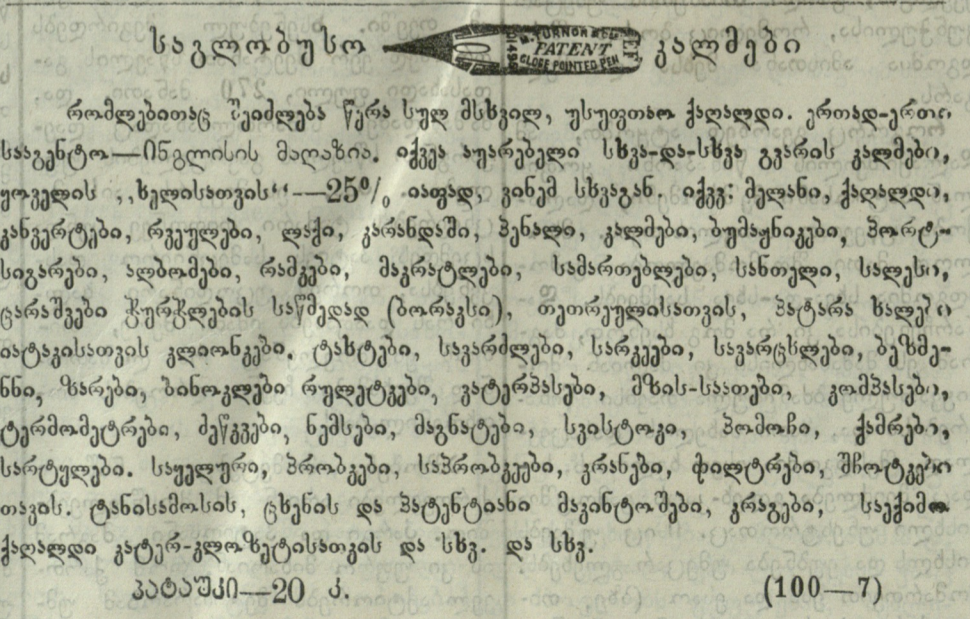 საგლობუსო H. TURNOR & Co. PATENT CLOSE POINTED PEN EF კალმები
რომლებითაც შეიძლება წერა სულ მსხვილ, უსუფთაო ქაღალდი. ერთად-ერთი
სააგენტო—ინგლისის მაღაზია. იქვეა აუარებელი სხვა-და-სხვა გვარის კალმები,
ყოველის „ხელისათვის“—25% იაფად, ვინემ სხვაგან. იქვე: მელანი, ქაღალდი,
კანვერტები, რვეულები, ლაქი, კარანდაში, პენალი, კალმები, ბუმაჟნიკები, პორტ-
სიგარები, ალბომები, რამკები, მაკრატლები, სამართებლები, სანთელი, სალესი,
ცარაშკები ჭურჭლების საწმედად (ბორაკსი), თეთრეულისათვის, პატარა ხალები
იატაკისათვის კლიონკები. ტახტები, სავარძლები, სარკეები, სავარცხლები, ბეზმე-
ნნი, ზარები, ბინოკლები რულეტკები, ვატერპასები, მზის-საათები, კომპასები,
ტერმომეტრები, ძეწკვები, ნემსები, მაგნატები, სვისტოკი, პომოჩი, ქამრები,
სარტულები. საყელური, პრობკები, საპრობკეები, კრანები, ფილტრები, შჩოტკები
თავის. ტანისამოსის, ცხენის და პატენტიანი მაკინტოშები, კრაგები, საექიმო
ქაღალდი კატერ-კლოზეტისათვის და სხვ. და სხვ.
პატაშკი—20 კ. (100—7)